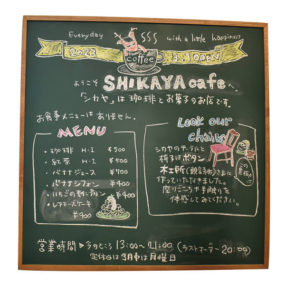 Everyday with a little happiness
coffee
ようこそ
SHIKAYA cafeへ
「シカヤ」は珈琲とお菓子のお店です。
お食事メニューはありません。
MENU
・珈琲 H・I ¥500
・紅茶 H・I ¥500
・バナナジュース ¥500
・バナナシフォン ¥400
・レアチーズケーキ
¥400
Look our chair
シカヤのテーブルと
椅子はボタン
木工所
作っていただきました。
座りごこちや手触りを
体感してみてください。
営業時間 ▶ 今のところ 13:00〜21:00 (ラストオーダー 20:00)
定休日は日月と月曜日